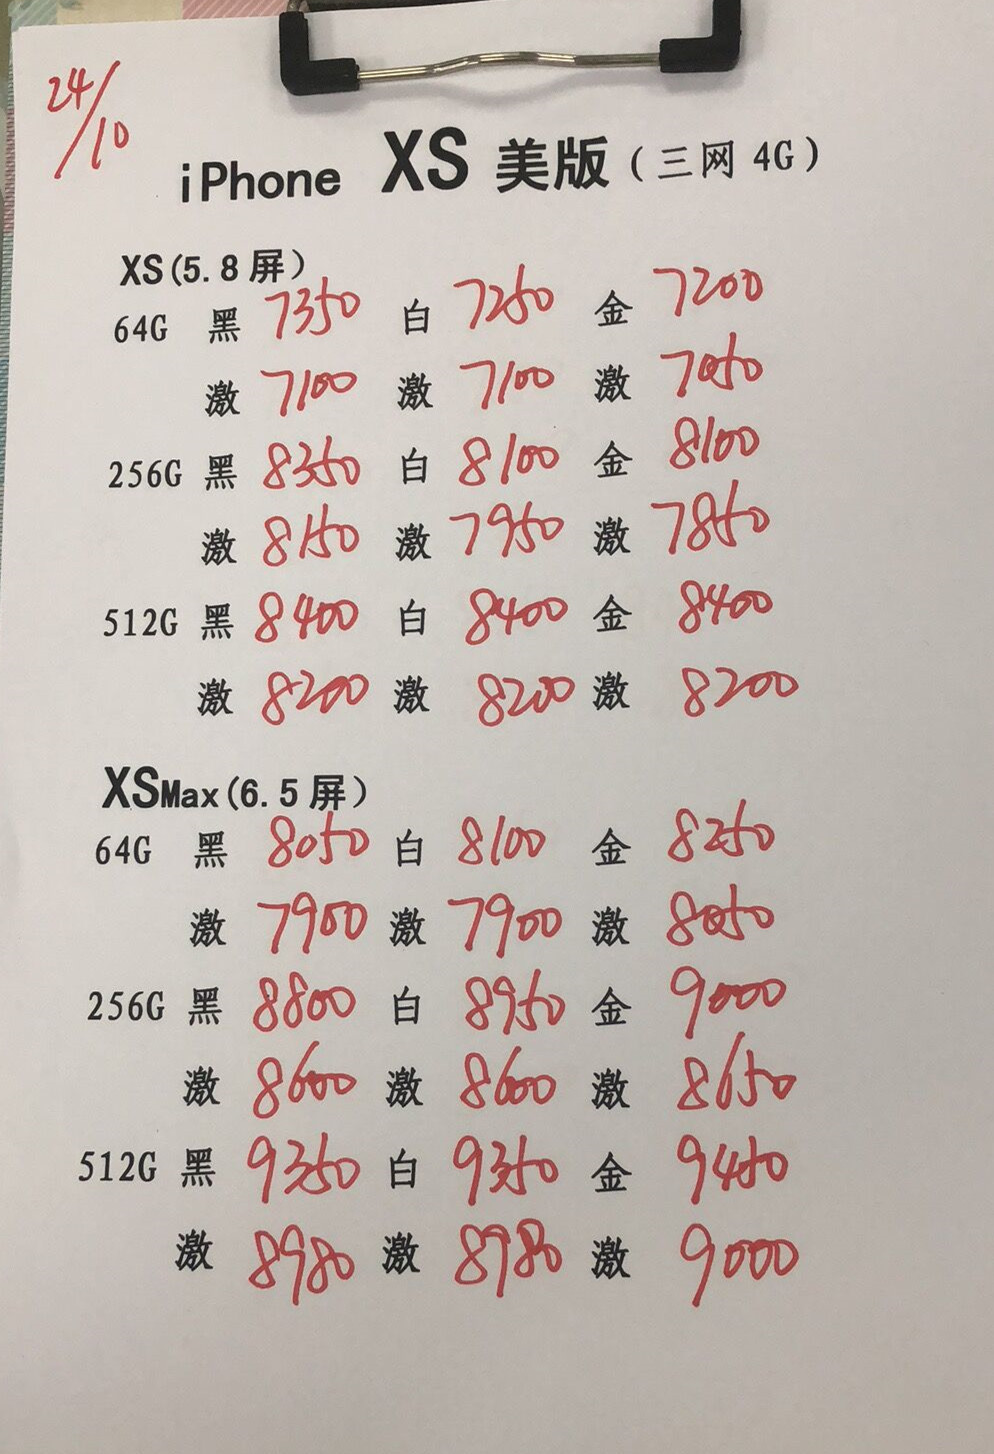 24/10
iPhone XS 美版(三网 4G)
XS(5.8 屏)
64G 黑 7350 白 7250 金 7200
激 7100 激 7100 激 7050
256G 黑 8350 白 8100 金 8100
激 8150 激 7950 激 7850
512G 黑 8400 白 8400 金 8400
激 8200 激 8200 激 8200
XSMax(6.5 屏)
64G 黑 8050 白 8100 金 8250
激 7900 激 7900 激 8050
256G 黑 8800 白 8950 金 9000
激 8600 激 8600 激 8650
512G 黑 9350 白 9350 金 9450
激 8980 激 8980 激 9000